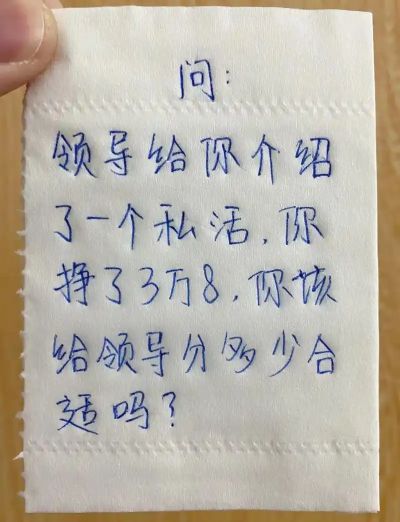 问：
领导给你介绍
了一个私活，你
挣了3万8，你该
给领导分多少合
适吗？